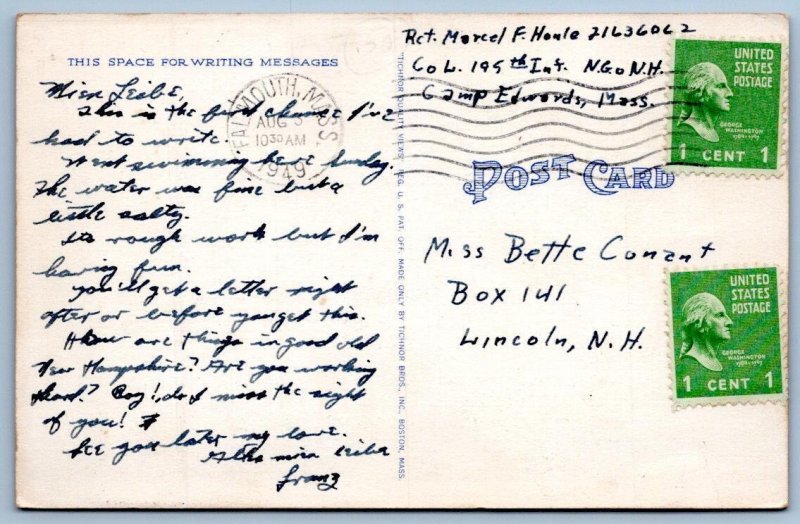 THIS SPACE FOR WRITING MESSAGES
Mien Leibe,
This is the first chance I've
had to write.
Went swimming here Sunday.
The water was fine but a
little salty.
Its rough work but I'm
having fun.
You'll get a letter right
after or before you get this.
How are things in good old
New Hampshire? Are you working
hard? Boy!, do I miss the sight
of you!
See you later my love.
mien leibe
Franz
FALMOUTH, MASS.
AUG
1030 AM
1949
"TICHNOR QUALITY VIEWS," REG. U. S. PAT. OFF. MADE ONLY BY TICHNOR BROS., INC., BOSTON, MASS.
Rct. Marcel F. Houle 21636062
Co L. 195th Inf. N.G.o N.H.
Camp Edwards, Mass.
POST CARD
Miss Bette Conant
Box 141
Lincoln, N.H.
UNITED
STATES
POSTAGE
GEORGE
WASHINGTON
1789-1797
1 CENT 1
UNITED
STATES
POSTAGE
GEORGE
WASHINGTON
1789-1797
1 CENT 1